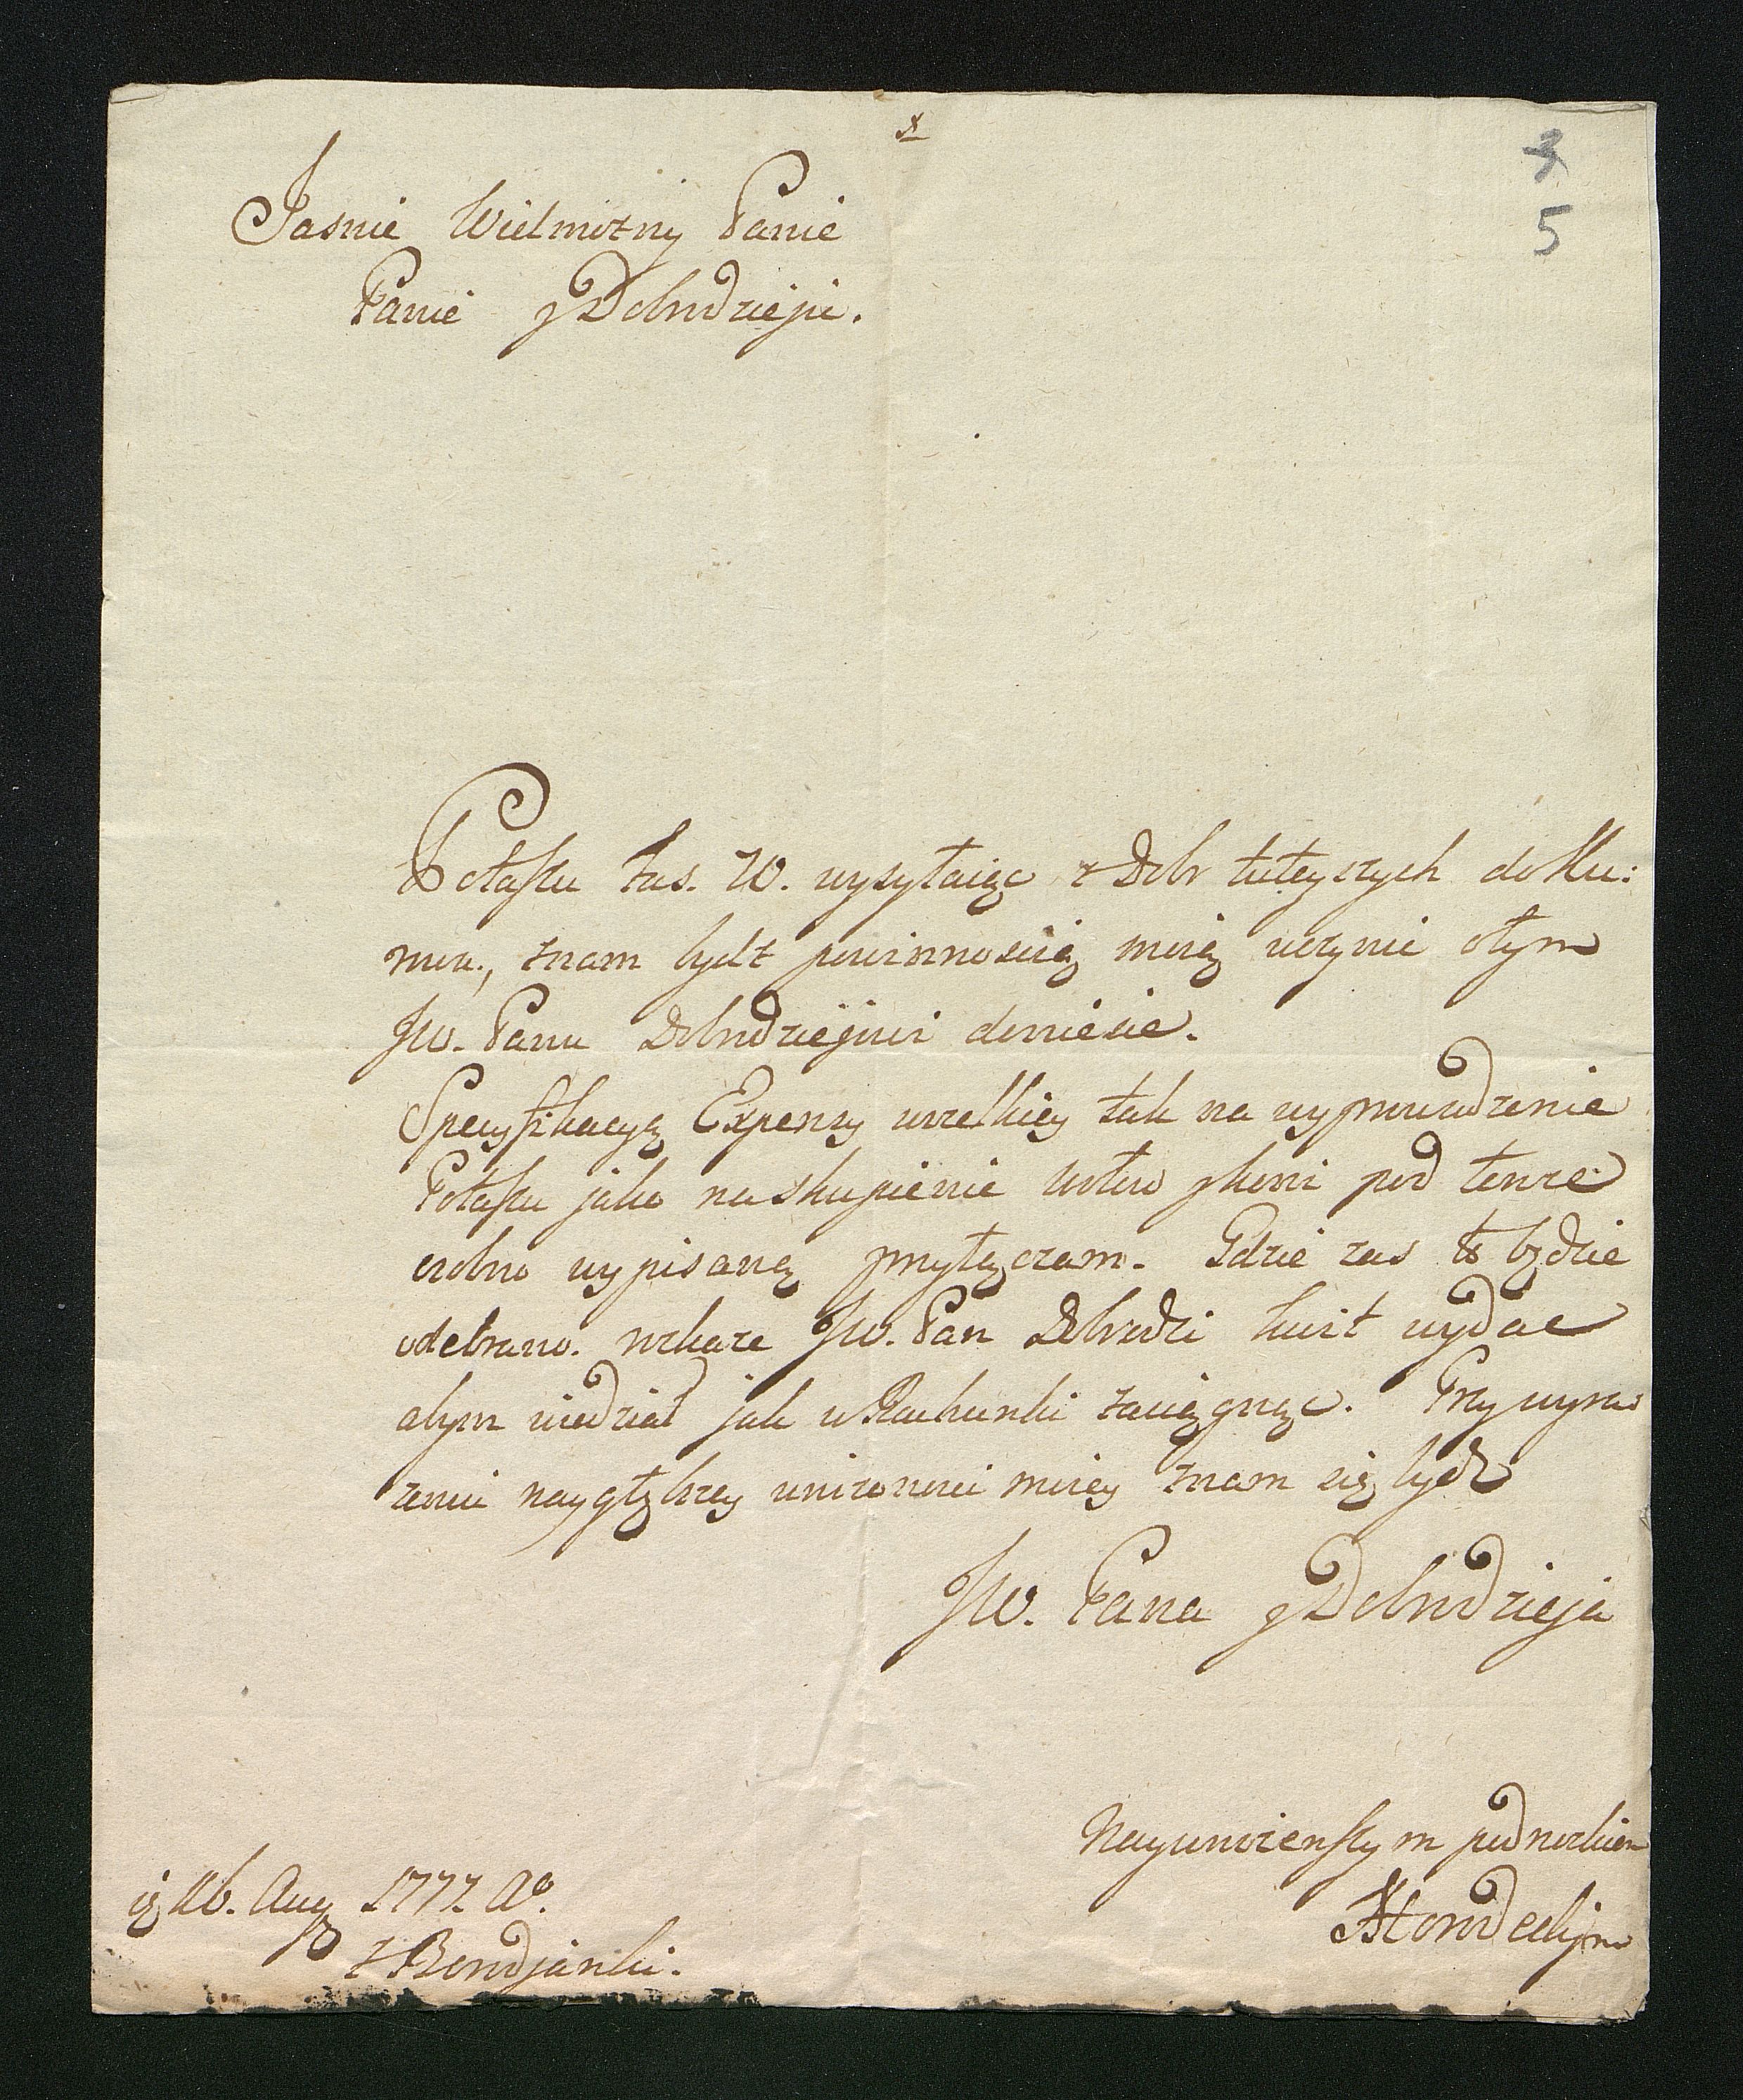 3
5
Jasnie Wielmożny Panie
Panie y Dobrodzieju.
Potaszu fas. W. wysyłaiąc z Dobr tuteyszych do Ku:
mowa, znam bydź powinnoscią moią uczynić otym
JW. Panu Dobrodziejowi doniesie.
Specyfikacyą Expensy wszelkiey tak na wyprowadzenie
Potaszu jako na skupienie wołow y koni pod tenże
osobno wypisaną przyłączam. Gdzie zas to będzie
odebrano. wskaże JW. Pan Dobrodzi kwit wydac
abym wiedział jak w Rachunki zaciągnąc. Przy wyra
zeniu naygłębszey unizonosci moiey znam się bydź
JW. Pana y Dobrodzieja
Nayunizenszym podnozkiem
16. Aug 1777. Ao.
z